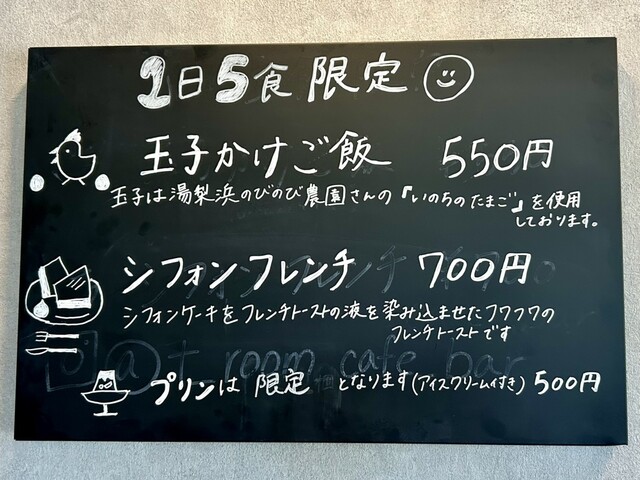 1日5食限定
玉子かけご飯 550円
玉子は湯梨浜のびのび農園さんの「いのちのたまご」を使用
しております。
シフォンフレンチ 700円
シフォンケーキをフレンチトーストの液を染み込ませたフワフワの
フレンチトーストです
@t room cafe bar
プリンは 限定 となります(アイスクリーム付き) 500円